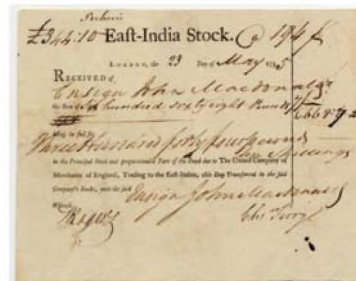 £344:10 East-India Stock. @ 194
London, the 23 Day of May
Received of
Ensign John Macdonald
the Sum of Six hundred sixty eight Pounds
being in full for
Three Hundred forty four pounds
Ten Shillings
in the Principal Stock and proportionable Part of the Fund due to The United Company of
Merchants of England, Trading to the East-Indies, this Day Transferred in the said
Company's Books, unto the said
Ensign John Macdonald
Witness